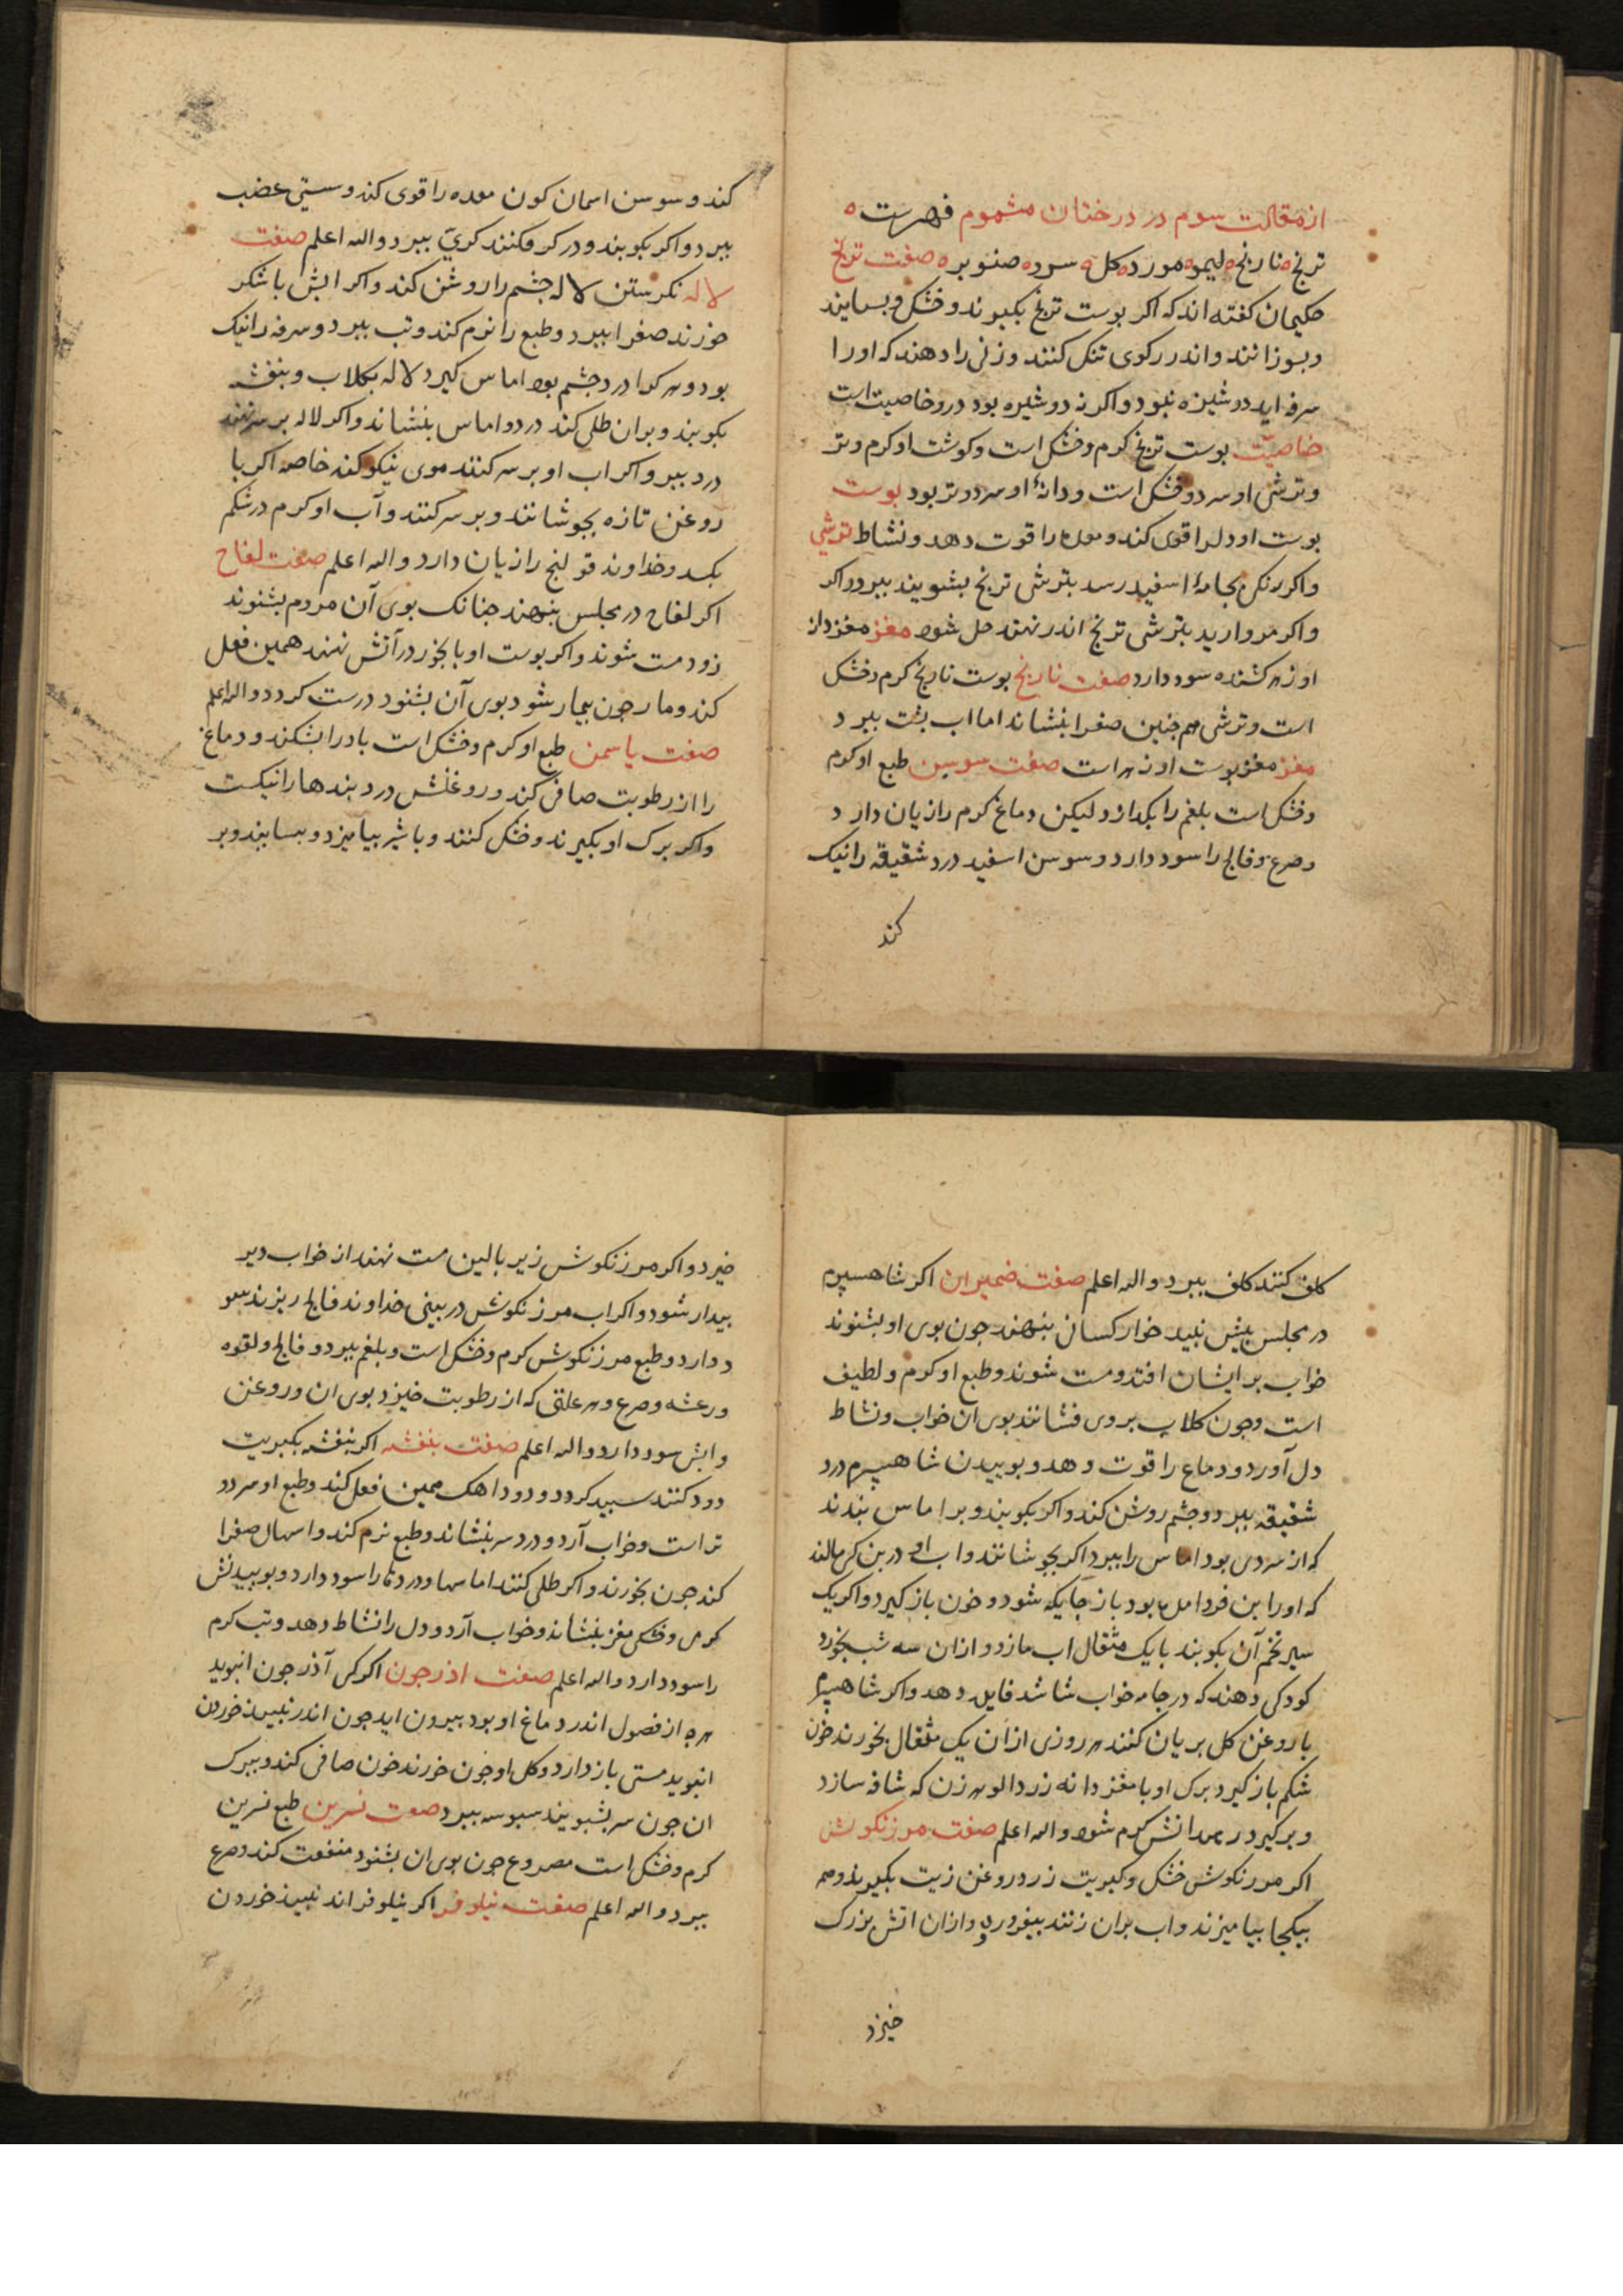 از مقالت سوم در درختان مشموم فهرست ه
ترنج ه نارنج ه لیمو ه مورد ه کل ه سرو ه صنوبر ه صفت ترنج
حکیمان کفته اند که اکر بوست ترنج بکیرند و خشک و بسایند
و بسوزانند و اندر رکوی تنک کنند و زنی را دهند که اورا
سرفه اید دوشیزه نبود و اکر نه دوشیزه بود در و خاصیت است
خاصیت بوست ترنج کرم و خشک است و کوشت او کرم و تر
و ترشی او سرد و خشک است و دانهٔ او سرد و تر بود بوست
بوست او دلرا قوی کند و معده را قوت دهد و نشاط ترشی
و اکر رنکی بجامهٔ اسفید رسد بترشی ترنج بشویند ببرد و اکر
و اکر مروارید بترشی ترنج اندر نهند حل شود مغز مغز دانهٔ
او زهر کشنده سود دارد صفت نارنج بوست نارنج کرم و خشک
است و ترشی هم جنین صفرا بنشاند اما اب بشت ببرد
مغز مغز بوست او زهر است صفت سوسن طبع او کرم
و خشک است بلغم را بکدازد لیکن دماغ کرم را زیان دارد
و صرع و فالج را سود دارد و سوسن اسفید درد شقیقه را نیک
کند
کند و سوسن اسمان کون معده را قوی کند و سستی عضب
ببرد و اکر بکوبند و در کر فکنند کری ببرد و الله اعلم صفت
لاله نکرستن لاله جشم را روشن کند و اکر ابش با شکر
خورند صفرا ببرد و طبع را نرم کند و تب ببرد و سرفه را نیک
بود و هر کرا درد جشم بود اماس کیرد لاله بکلاب و بنفشه
بکوبند و بران طلی کند درد و اماس بنشاند و اکر لاله بر سر نهند
درد ببرد و اکر اب او بر سر کنند موی نیکو کند خاصه اکر با
روغن تازه بجوشانند و بر سر کنند و آب او کرم در شکم
بکسد و خداوند قولنج را زیان دارد و الله اعلم صفت لفاح
اکر لفاح در مجلس بنهند جنانک بوی آن مردم بشنوند
زود مست شوند و اکر بوست او با بخور در آتش نهند همین فعل
کند و مار جون بیمار شود بوی آن بشنود درست کردد و الله اعلم
صفت یاسمن طبع او کرم و خشک است باد را بشکند و دماغ
را از رطوبت صافی کند و روغنش درد بندها را نیکست
و اکر برک او بکیرند و خشک کنند و با شیر بیامیزد و بسایند و بر
کلف کنند کلف ببرد و الله اعلم صفت ضمیران اکر شاهسپرم
در مجلس بیش نبید خوار کسان بنهند جون بوی او بشنوند
خواب بر ایشان افتد و مست شوند و طبع او کرم و لطیف
است و جون کلاب بر وی فشانند بوی آن خواب و نشاط
دل آورد و دماغ را قوت دهد و بوییدن شاهسپرم درد
شقیقه ببرد و جشم روشن کند و اکر بکوبند و بر اماس بندند
که از سردی بود اماس را ببرد اکر بجوشانند و اب او در بن کرمالند
که اورا بن فرد امل بود باز جایکه شود و خون باز کیرد و اکر یک
سیر تخم آن بکوبند با یک مثقال اب مازو و ازان سه شب بخورد
کودکی دهند که در جامه خواب شاشد فایده دهد و اکر شاهسپرم
با روغن کل بریان کنند هر روزی ازان یک مثقال بخورند خون
شکم باز کیرد و برک او با مغز دانه زرد الو هر زن که شافه سازد
و بر کیرد رحمدانش کرم شود و الله اعلم صفت مرزنکوش
اکر مرزنکوش خشک و کبریت زرد و روغن زیت بکیرند و همه
بیکجا بیامیزند و اب بران زنند بیفروزد و ازان اتش بزرک
خیزد
خیزد و اکر مرزنکوش زیر بالین مست نهند از خواب دیر
بیدار شود و اکر اب مرزنکوش در بینی خداوند فالج ریزند سو
د دارد و طبع مرزنکوش کرم و خشک است و بلغم ببرد و فالج و لقوه
و رعشه و صرع و هر علتی که از رطوبت خیزد بوی ان و روغن
و ابش سود دارد و الله اعلم صفت بنفشه اکر بنفشه بکبریت
دود کنند سبید کردد و دود اهک همین فعل کند و طبع او سرد و
تر است و خواب آرد و درد سر بنشاند و طبع نرم کند و اسهال صفرا
کند جون بخورند و اکر طلی کنند اماسها و دردها را سود دارد و بوییدنش
کرمی و خشکی مغز بنشاند و خواب آرد و دل را نشاط دهد و تب کرم
را سود دارد و الله اعلم صفت اذرجون اکر کسی آذرجون انبوید
هرچه از فصول اندر دماغ او بود بیرون اید جون اندر نبیذ خوردن
انبوید مستی باز دارد و کل او جون خورند خون صافی کند و ببرک
ان جون سر بشویند سبوسه ببرد صفت نسرین طبع نسرین
کرم و خشک است مصروع جون بوی ان بشنود منفعت کند و صرع
ببرد و الله اعلم صفت نیلوفر اکر نیلوفر اندر نبیذ خوردن